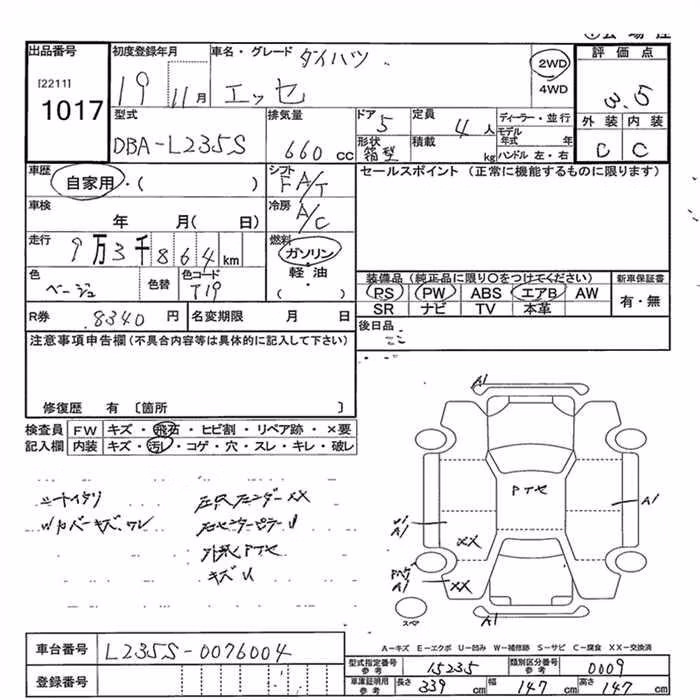 出品番号
[2211]
1017
初度登録年月
19 11月
車名・グレード ダイハツ
エッセ
2WD
4WD
評価点
3.5
外装 内装
C C
型式
DBA-L235S
排気量
660 cc
ドア 5
形状 箱型
定員 4人
積載 kg
ディーラー・並行
モデル年式 年
ハンドル 左・右
車歴
自家用・( )
シフト
F A/T
セールスポイント (正常に機能するものに限ります)
車検
年 月( 日)
冷房
A/C
走行
9万3千864km
燃料
ガソリン
軽油
・( )
色
ベージュ
色替
色コード
T19
装備品 (純正品に限り○をつけてください)
新車保証書
PS PW ABS エアB AW
有・無
SR ナビ TV 本革
R券 8340 円
名変期限 月 日
後日品
注意事項申告欄(不具合内容等は具体的に記入して下さい)
修復歴 有 〔箇所 〕
検査員
記入欄
FW キズ・飛石・ヒビ割・リペア跡・×要
内装 キズ・汚レ・コゲ・穴・スレ・キレ・破レ
シートイタリ
左Fフェンダー XX
左センターピラー U
キズU
A1
PTセ
A1
A1
XX
XX
A1
A1
スペア
A-キズ E-エクボ U-凹み W-補修跡 S-サビ C-腐食 XX-交換済
車台番号 L235S-0076004
登録番号
型式指定番号 参考 15235
類別区分番号 参考 0009
車庫証明用 参考 長さ 339 cm 幅 147 cm 高さ 147 cm